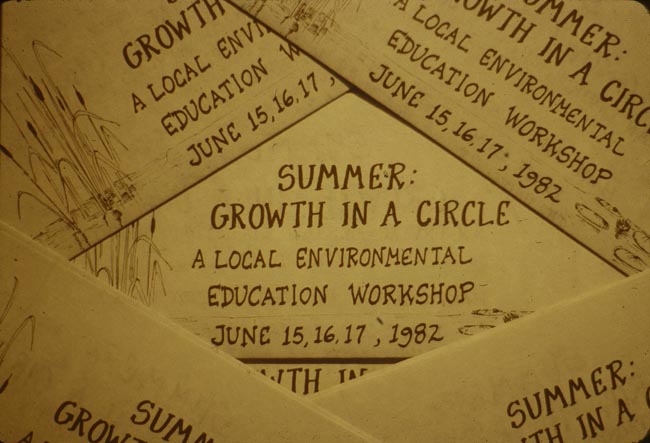 GROWTH
A LOCAL ENVIN
EDUCATION W
JUNE 15, 16, 17,
SUMMER:
GROWTH IN A CIRC
A LOCAL ENVIRONMENTAL
EDUCATION WORKSHOP
JUNE 15, 16, 17, 1982
SUMMER:
GROWTH IN A CIRCLE
A LOCAL ENVIRONMENTAL
EDUCATION WORKSHOP
JUNE 15, 16, 17, 1982
WTH IN
SUMM
GROW
SUMMER:
WTH IN A